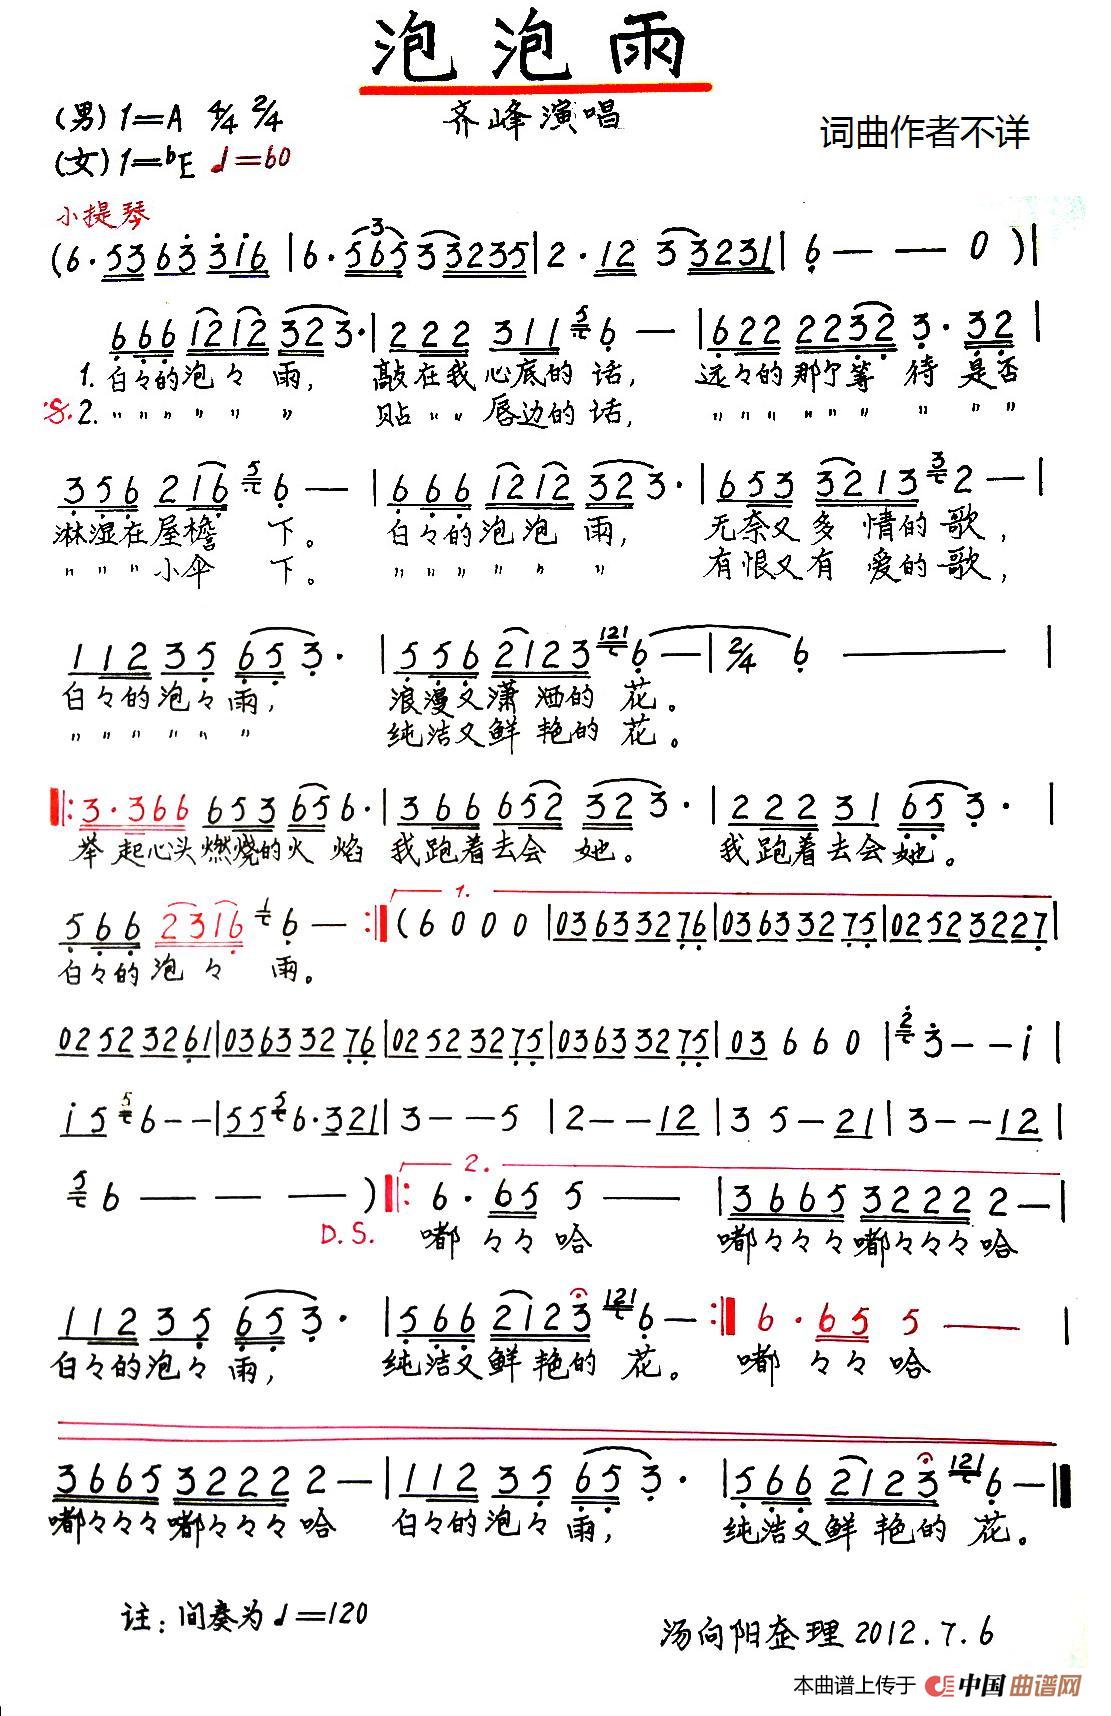 泡泡雨
(男) 1=A 4/4 2/4
齐峰演唱
词曲作者不详
(女) 1=bE ♩=60
小提琴
(6·53 63 316|6·565 33235|2·12 33231|6— —0)|
666 1212 323·|222 311 5 6—|622 2232 3·32|
1. 白々的泡々雨, 敲在我心底的话, 远々的那个等待是否
𝄋 2. 〃〃〃〃〃〃 贴〃〃唇边的话, 〃〃〃〃〃〃〃〃〃
356 216 5 6—|666 1212 323·|653 3213 3 2—|
淋湿在屋檐下。 白々的泡泡雨, 无奈又多情的歌,
〃〃〃小伞下。 〃〃〃〃〃〃 有恨又有爱的歌,
112 35 653·|556 2123 121 6—|2/4 6——|
白々的泡々雨, 浪漫又潇洒的花。
〃〃〃〃〃〃 纯洁又鲜艳的花。
‖:3·366 653 656·|366 652 323·|222 31 653·|
举起心头燃烧的火焰 我跑着去会她。 我跑着去会她。
1.
566 2316 1 6—:‖(6000|03633276|03633275|02523227|
白々的泡々雨。
02523261|03633276|02523275|03633275|03660|2 3——i|
i5 5 6——|55 5 6·321|3——5|2——12|35—21|3——12|
2.
5 6———)‖:6·65 5——|3665 3222 2—|
D.S. 嘟々々哈 嘟々々々嘟々々々哈
112 35 653·|566 2123 121 6—:‖6·65 5——|
白々的泡々雨, 纯洁又鲜艳的花。 嘟々々哈
3665 3222 2—|112 35 653·|566 2123 121 6—‖
嘟々々々嘟々々々哈 白々的泡々雨, 纯洁又鲜艳的花。
注: 间奏为♩=120
汤向阳整理 2012.7.6
本曲谱上传于 中国曲谱网